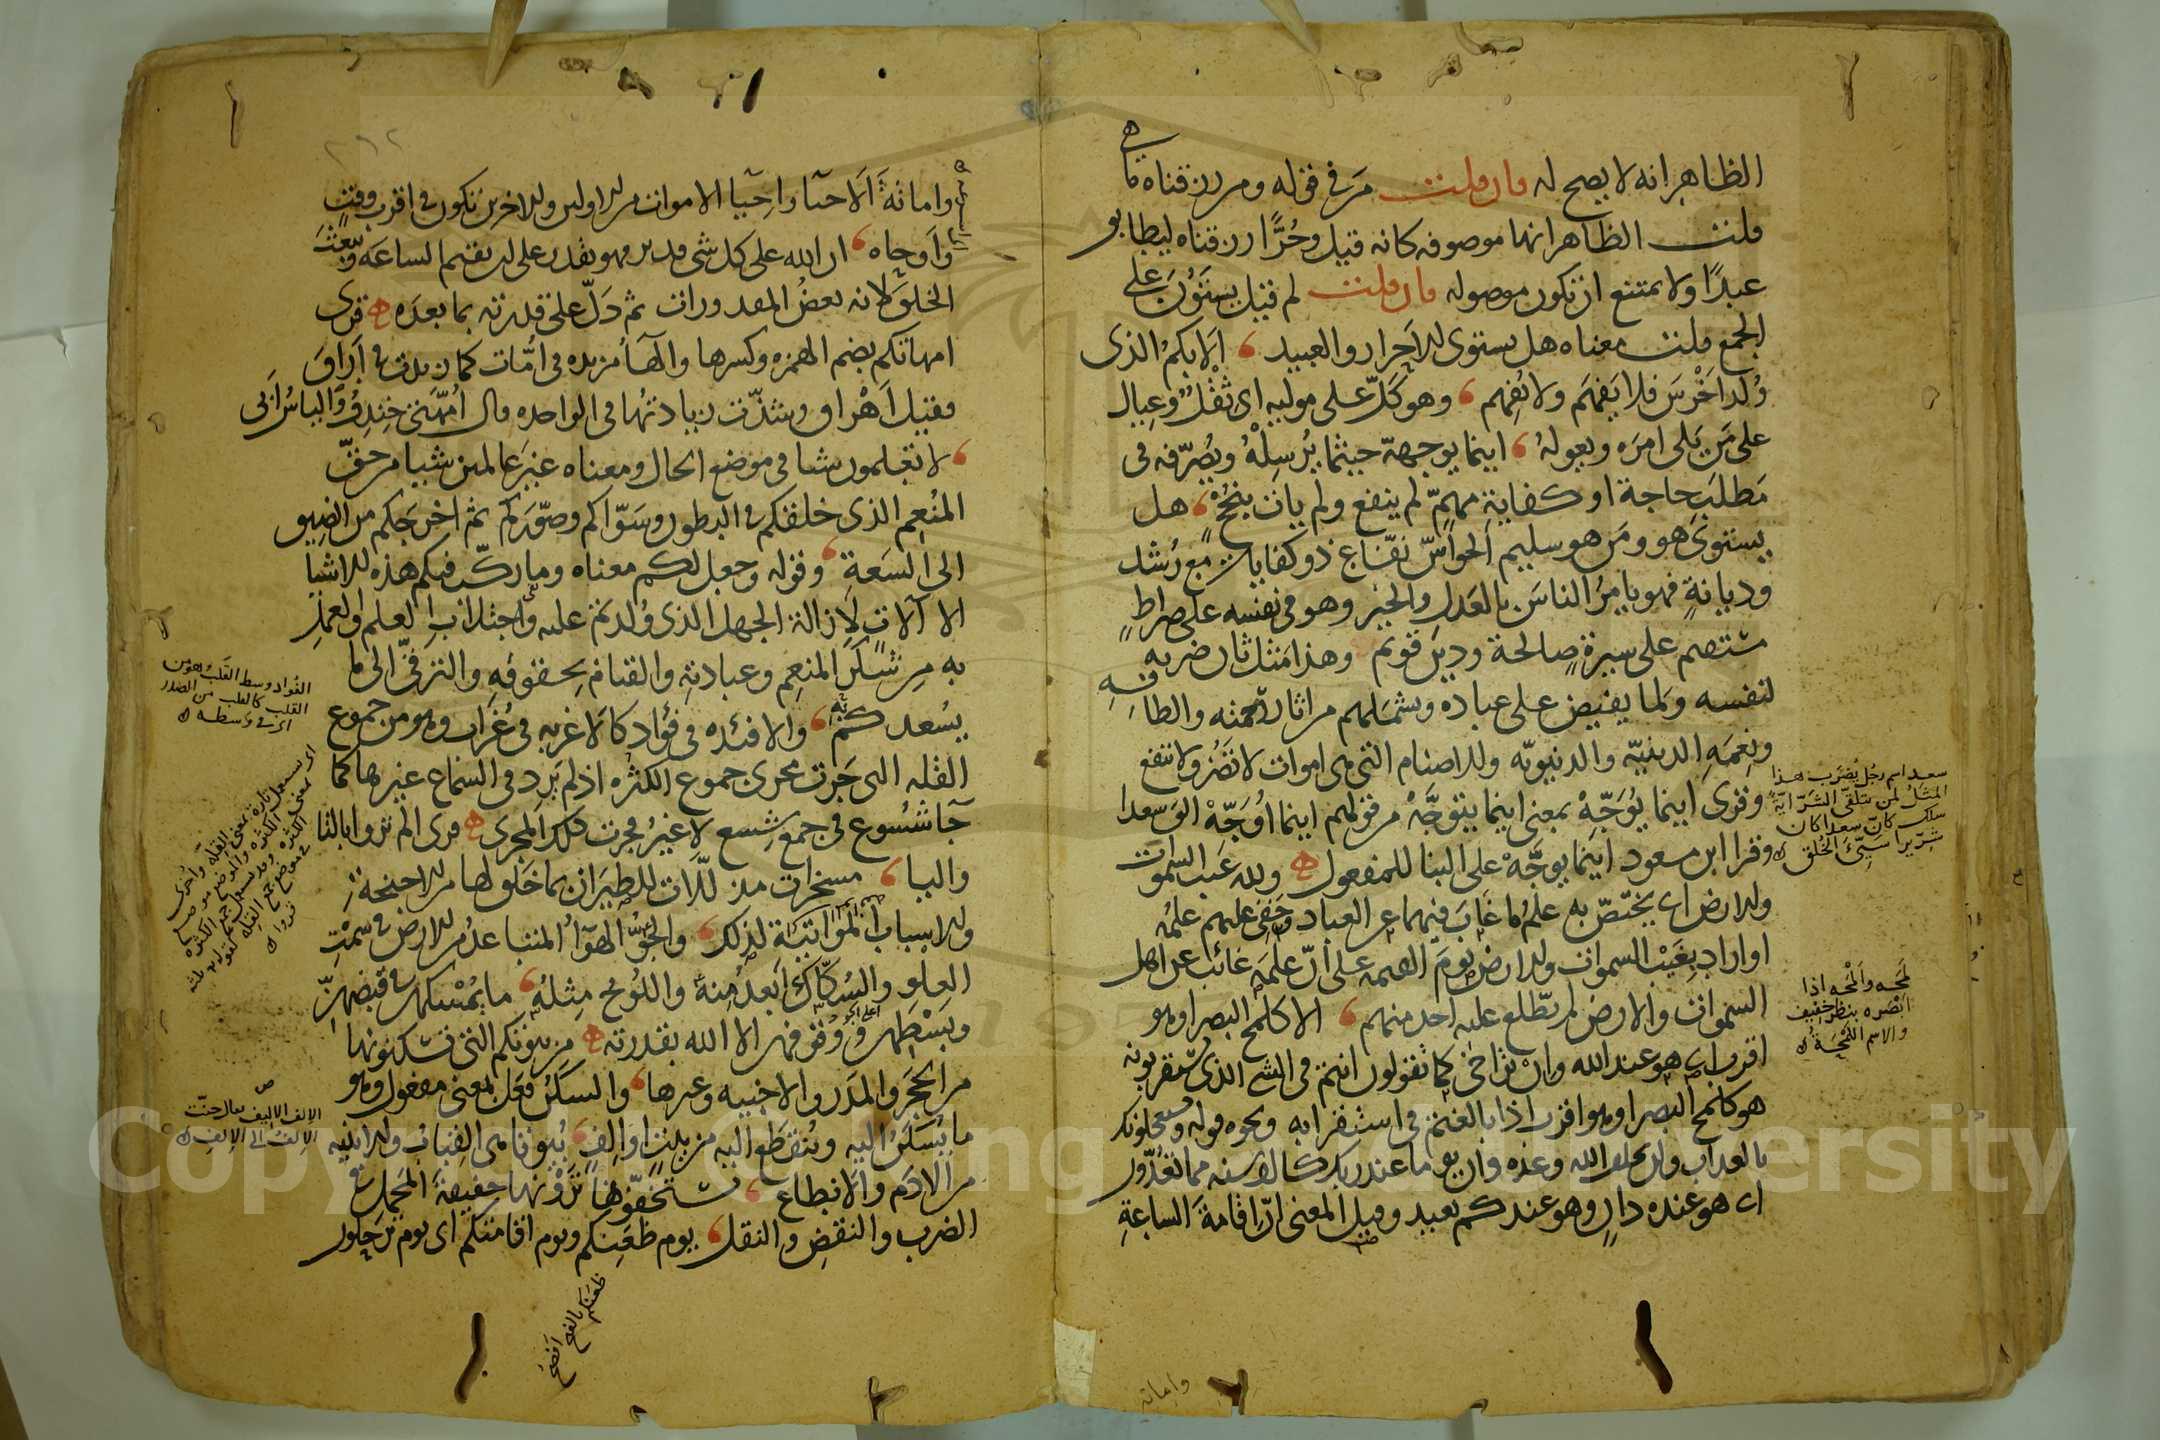 الظاهر انه لا يصح له فان قلت مَن في قوله ومن رزقناه ما هي
قلت الظاهر انها موصوفه كانه قيل وحُرًّا رزقناه ليطابق
عبدًا ولا يمتنع ان تكون موصوله فان قلت لم قيل يستَوُنَ على
الجمع قلت معناه هل يستوى الاحرار والعبيد الابكمُ الذى
وُلد اَخْرسَ فلا يَفهَم ولا يُفهِم وهو كَلٌّ على موليه اى ثِقْلٌ وعِيال
على مَن يَلى امرَه ويعولهُ اينما يوجههّ حيثما يُرسِلْهُ ويُصَرّفه فى
مَطلَب حاجة او كفايةِ مهمٍّ لم ينفع ولم يات بنُجْحٍ هل
يستوى هو ومَن هو سليم الحواسّ نفّاع ذو كفايات مع رُشد
وديانةٍ فهو يامرُ الناسَ بالعَدل والخير وهو فى نفسه على صراطٍ
مستقيم على سيرةٍ صالحة ودينٍ قويم وهذا مَثل ثان ضربه
لنفسه ولما يفيض على عباده ويشملهم من اثار رحمته والطافه
ونِعَمِهِ الدينيّه والدنيويّه وللاصنام التى هى اموات لا تضُرّ ولا تنفع
وقرى اينما يُوَجِّهْ بمعنى اينما يتوجَّهْ من قولهم اينما اُوَجِّهْ القَ سعدا
وقرا ابن مسعود اينما يوجَّهْ على البنا للمفعول ولله غيب السموات
والارض اى يختصّ به علمُ ما غابَ فيهما عن العباد وخَفِىَ عليهم علمُه
او اراد بِغَيْب السموات والارض يومَ القيمه على انّ علمَه غائب عن اهل
السموات والارض لم يطّلع عليه احد منهم الا كلمح البصر او هو
اقرب اى هو عند الله وانْ تراخى كما تقولون انتم فى الشئ الذى تستقربونه
هو كلمح البصر او هو اقرب اذا بالغتم فى استقرابه ونحوه قوله ويستعجلونك
بالعذاب ولن يخلف الله وعده وان يوما عند ربك كالف سنه مما تعدّون
اى هو عنده دانٍ وهو عندكم بعيد وقيل المعنى انّ اقامةَ الساعةِ
سعد اسم رجل يُضرَب هذا
المثل لمن يتلقى الشرّ
كان سعد
شرّيرا سيّئَ الخُلق
لَمحه واَلْمحه اذا
ابْصَره بنظر خفيف
والاسم اللمْحَة
واماته
واماتهَ الاحيا واحيا الاموات من الاولين والاخرين تكون فى اقرب وقتٍ
واَوحاه ان الله على كل شى قدير فهو يقدر على ان يقيم الساعه ويبعثَ
الخلقَ لانه بعضُ المقدورات ثم دَلّ على قدرته بما بعدَه قرى
امهاتكم بضم الهمزه وكسرها والهآُ مزيده فى اُمّات كما زيدت فى اَراق
فقيل اَهْراق وشذّت زيادتها فى الواحده قال اُمّهتى خِندِفُ والياسُ اَبى
لا تعلمون شيا فى موضع الحال ومعناه غيرَ عالمين شيا من حقّ
المُنعِم الذى خلقكم فى البطون وسَوّاكم وصّوَركم ثم اخرجكم من الضِيق
الى السَعةِ وقوله وجعل لكم معناه وما ركّب فيكم هذه الاشيا
الا آلات لِازالة الجهل الذى وُلدتم عليه واجتلابِ العلم والعملِ
به من شُكرِ المنعِم وعبادتِهِ والقيام بِحقوقِهِ والترقّى الى ما
يُسعدكم والافئده فى فؤاد كالاغربه فى غُراب وهو من جموع
القله التى جَرت مجرى جموع الكثره اذ لم يَرِد فى السماع غيرها كما
جآ شُسُوع فى جمع شِسع لا غيرُ فجرت ذلك المجرى قرى الم تروا بالتا
واليا مسخرات مذللّات للطيَران بما خَلق لها من الاجنحةِ
والاسباب المواتيَة لذلك والجوُّ الهوآُ المتباعدُ من الارض فى سَمْتِ
العِلو والسُكاك اَبعدُ منه واللُوحُ مِثلُه ما يُمْسكهن فى قبضهنّ
وبَسْطهن ووُقوفهن الا الله بقدرته من بيوتكم التى تسكنونها
من الحَجَر والمدَر والاخبيه وغيرها والسكَنُ فَعَل بمعنى مفعول وهو
ما يُسكَنُ اليه ويُنقطَع اليه من بيتٍ او اِلفٍ بُيوتا هى القِباب والابنيه
من الادَم والانطاع تستخفّونها تَرَوْنها خفيفةَ المَحمِل فى
الضرب والنقضِ والنقل يوم ظَعنِكم ويوم اقامتكم اى يوم ترحلون
الفُؤاد وسط القَلب
القلب كالقلب من الصدر
اى فى وسطه
الاِلف الاليف يقال حنّت
الاِلفُ الى الاِلفِ
اعلى الجو
ظعَنكم بالفتح
افصَح
Copyright © King Saud University